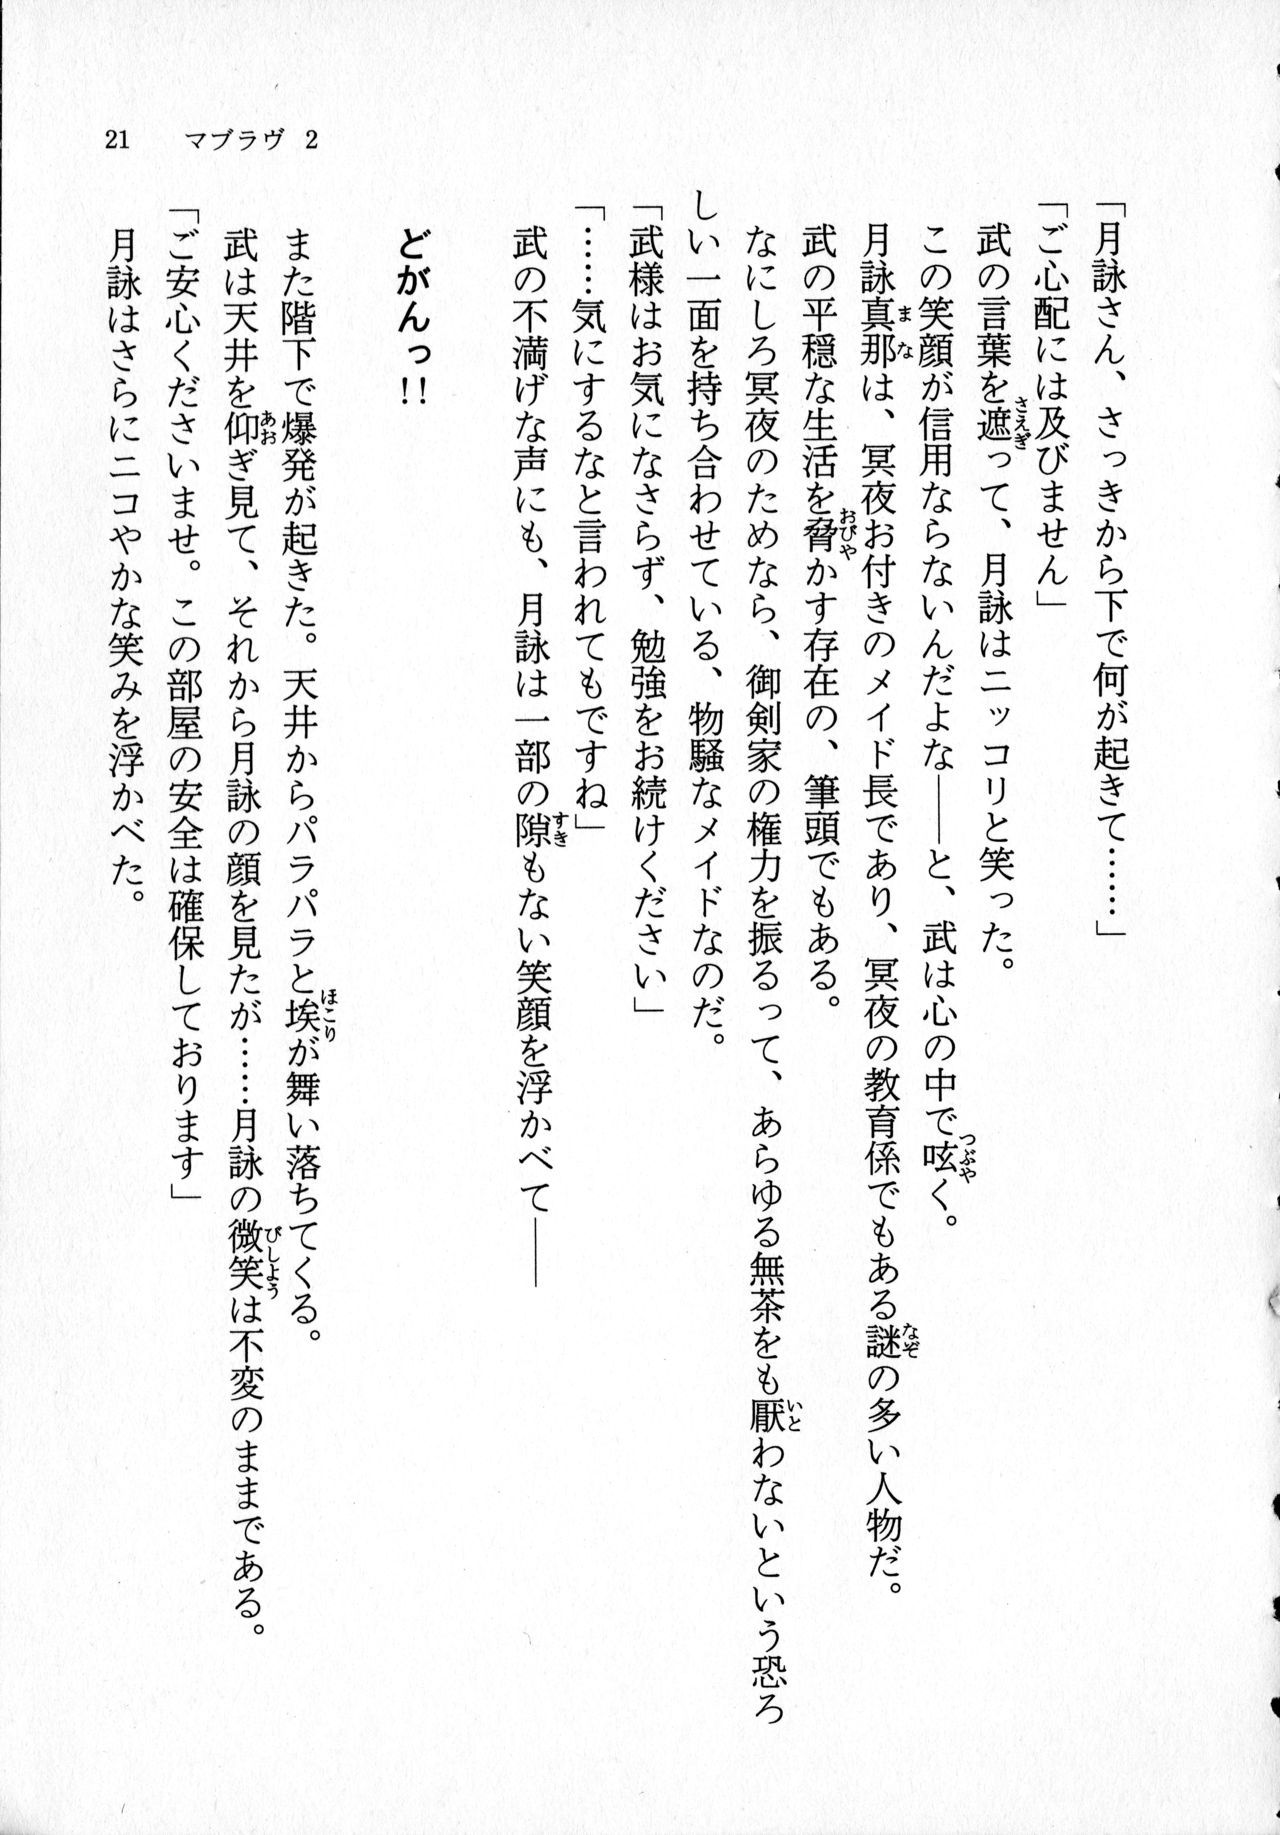 21　マブラヴ 2
「月詠さん、さっきから下で何が起きて……」
「ご心配には及びません」
武の言葉を遮って、月詠はニッコリと笑った。
この笑顔が信用ならないんだよな――と、武は心の中で呟く。
月詠真那は、冥夜お付きのメイド長であり、冥夜の教育係でもある謎の多い人物だ。
武の平穏な生活を脅かす存在の、筆頭でもある。
なにしろ冥夜のためなら、御剣家の権力を振るって、あらゆる無茶をも厭わないという恐ろ
しい一面を持ち合わせている、物騒なメイドなのだ。
「武様はお気になさらず、勉強をお続けください」
「……気にするなと言われてもですね」
武の不満げな声にも、月詠は一部の隙もない笑顔を浮かべて――
どがんっ!!
また階下で爆発が起きた。天井からパラパラと埃が舞い落ちてくる。
武は天井を仰ぎ見て、それから月詠の顔を見たが……月詠の微笑は不変のままである。
「ご安心くださいませ。この部屋の安全は確保しております」
月詠はさらにニコやかな笑みを浮かべた。